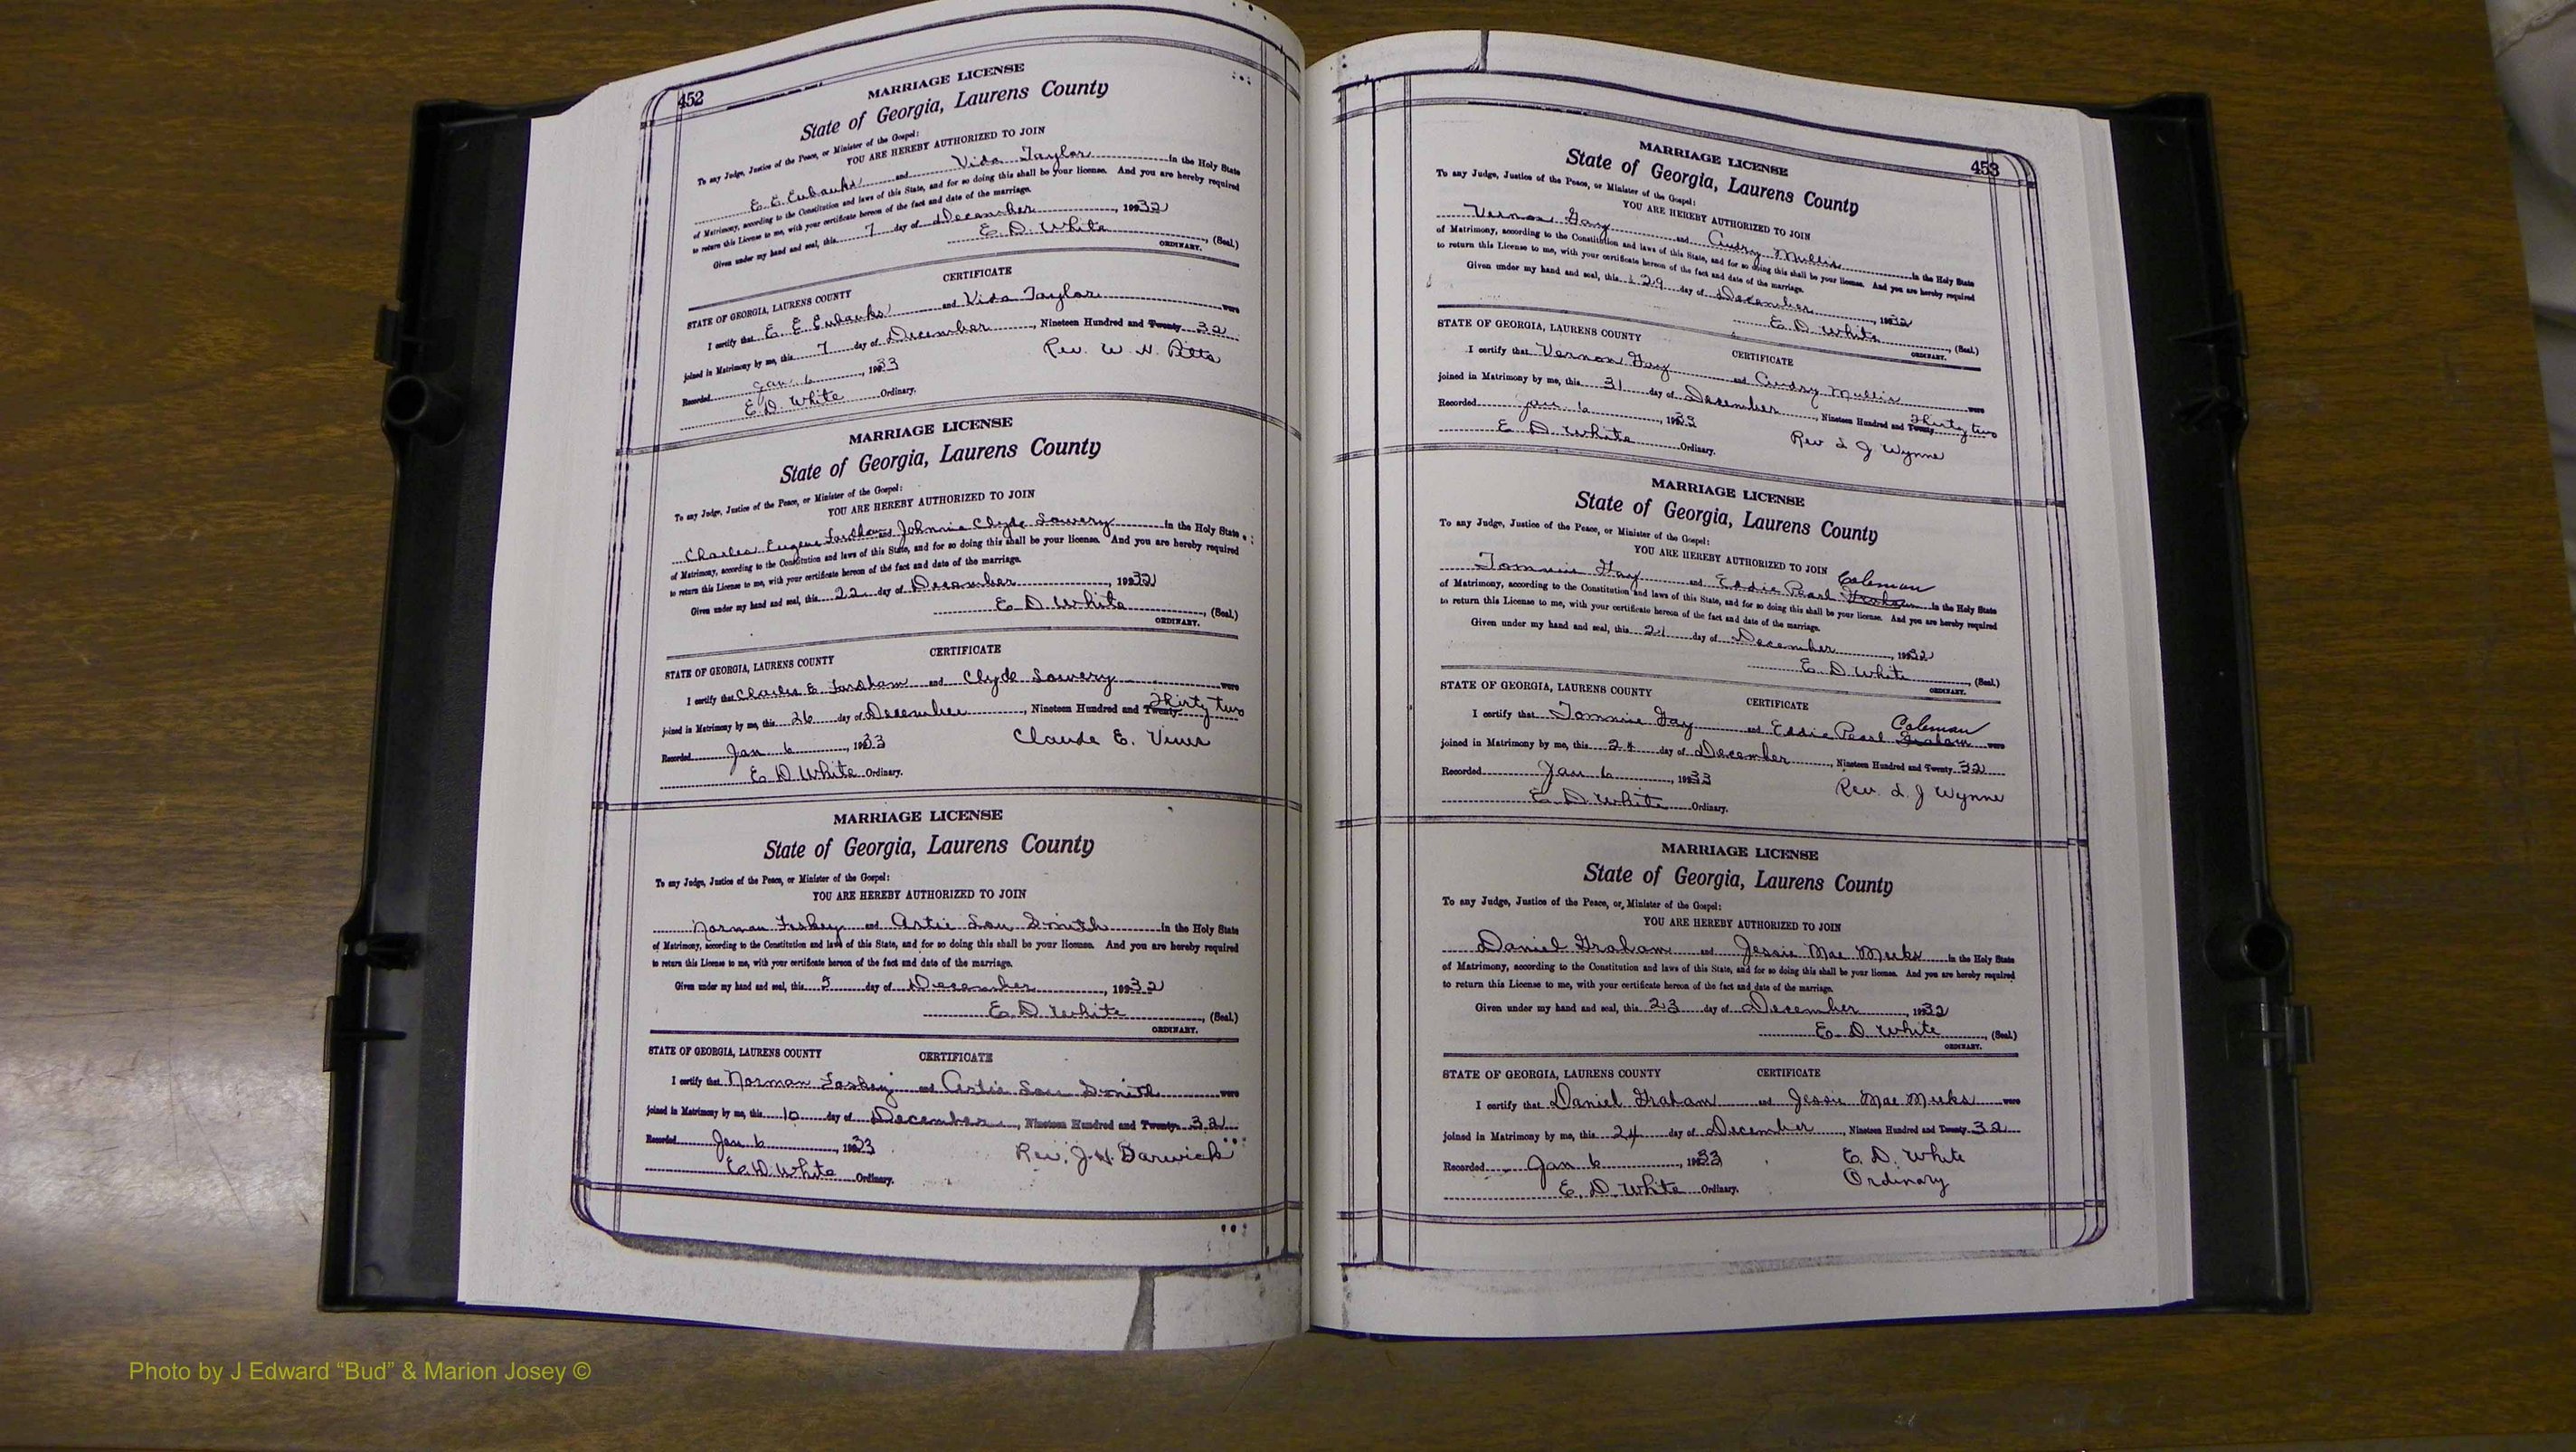 452
MARRIAGE LICENSE
State of Georgia, Laurens County
To any Judge, Justice of the Peace, or Minister of the Gospel:
YOU ARE HEREBY AUTHORIZED TO JOIN
E. E. Eubanks and Vida Taylor in the Holy State
of Matrimony, according to the Constitution and laws of this State, and for so doing this shall be your license. And you are hereby required
to return this License to me, with your certificate hereon of the fact and date of the marriage.
Given under my hand and seal, this 7 day of December, 1932
E. D. White, (Seal.)
ORDINARY.
CERTIFICATE
STATE OF GEORGIA, LAURENS COUNTY
I certify that E E Eubanks and Vida Taylor were
joined in Matrimony by me, this 7 day of December, Nineteen Hundred and Twenty 32
Recorded Jan 6, 1933
Rev. W. H.
E. D. White Ordinary.
MARRIAGE LICENSE
State of Georgia, Laurens County
To any Judge, Justice of the Peace, or Minister of the Gospel:
YOU ARE HEREBY AUTHORIZED TO JOIN
Charles Eugene Fordham and Johnnie Clyde Lowery in the Holy State
of Matrimony, according to the Constitution and laws of this State, and for so doing this shall be your license. And you are hereby required
to return this License to me, with your certificate hereon of the fact and date of the marriage.
Given under my hand and seal, this 22 day of December, 1932
E D White, (Seal.)
ORDINARY.
CERTIFICATE
STATE OF GEORGIA, LAURENS COUNTY
I certify that Charles E Fordham and Clyde Lowery were
joined in Matrimony by me, this 26 day of December, Nineteen Hundred and Twenty Thirty two
Recorded Jan 6, 1933
Claude E.
E D White Ordinary.
MARRIAGE LICENSE
State of Georgia, Laurens County
To any Judge, Justice of the Peace, or Minister of the Gospel:
YOU ARE HEREBY AUTHORIZED TO JOIN
Norman Foskey and Artie Lou Smith in the Holy State
of Matrimony, according to the Constitution and laws of this State, and for so doing this shall be your license. And you are hereby required
to return this License to me, with your certificate hereon of the fact and date of the marriage.
Given under my hand and seal, this 5 day of December, 1932
E. D. White, (Seal.)
ORDINARY.
STATE OF GEORGIA, LAURENS COUNTY CERTIFICATE
I certify that Norman Foskey and Artie Lou Smith were
joined in Matrimony by me, this 10 day of December, Nineteen Hundred and Twenty 32
Recorded Jan 6, 1933
Rev. J. H. Barwick
E. D. White Ordinary.
453
MARRIAGE LICENSE
State of Georgia, Laurens County
To any Judge, Justice of the Peace, or Minister of the Gospel:
YOU ARE HEREBY AUTHORIZED TO JOIN
Vernon Gay and Audry Mullis in the Holy State
of Matrimony, according to the Constitution and laws of this State, and for so doing this shall be your license. And you are hereby required
to return this License to me, with your certificate hereon of the fact and date of the marriage.
Given under my hand and seal, this 29 day of December, 1932
E. D. White, (Seal.)
ORDINARY.
STATE OF GEORGIA, LAURENS COUNTY
CERTIFICATE
I certify that Vernon Gay and Audry Mullis were
joined in Matrimony by me, this 31 day of December, Nineteen Hundred and Twenty Thirty two
Recorded Jan 6, 1933
Rev L J Wynne
E D White Ordinary.
MARRIAGE LICENSE
State of Georgia, Laurens County
To any Judge, Justice of the Peace, or Minister of the Gospel:
YOU ARE HEREBY AUTHORIZED TO JOIN
Tommie Gay and Eddie Pearl Graham Coleman in the Holy State
of Matrimony, according to the Constitution and laws of this State, and for so doing this shall be your license. And you are hereby required
to return this License to me, with your certificate hereon of the fact and date of the marriage.
Given under my hand and seal, this 21 day of December, 1932
E. D. White, (Seal.)
ORDINARY.
STATE OF GEORGIA, LAURENS COUNTY CERTIFICATE
I certify that Tommie Gay and Eddie Pearl Graham Coleman were
joined in Matrimony by me, this 24 day of December, Nineteen Hundred and Twenty 32
Recorded Jan 6, 1933
Rev. L. J Wynne
E. D. White Ordinary.
MARRIAGE LICENSE
State of Georgia, Laurens County
To any Judge, Justice of the Peace, or Minister of the Gospel:
YOU ARE HEREBY AUTHORIZED TO JOIN
Daniel Graham and Jessie Mae Meeks in the Holy State
of Matrimony, according to the Constitution and laws of this State, and for so doing this shall be your license. And you are hereby required
to return this License to me, with your certificate hereon of the fact and date of the marriage.
Given under my hand and seal, this 23 day of December, 1932
E. D. White, (Seal.)
ORDINARY.
STATE OF GEORGIA, LAURENS COUNTY CERTIFICATE
I certify that Daniel Graham and Jessie Mae Meeks were
joined in Matrimony by me, this 24 day of December, Nineteen Hundred and Twenty 32
Recorded Jan 6, 1933
E. D. White
Ordinary
E. D. White Ordinary.
Photo by J Edward “Bud” & Marion Josey ©